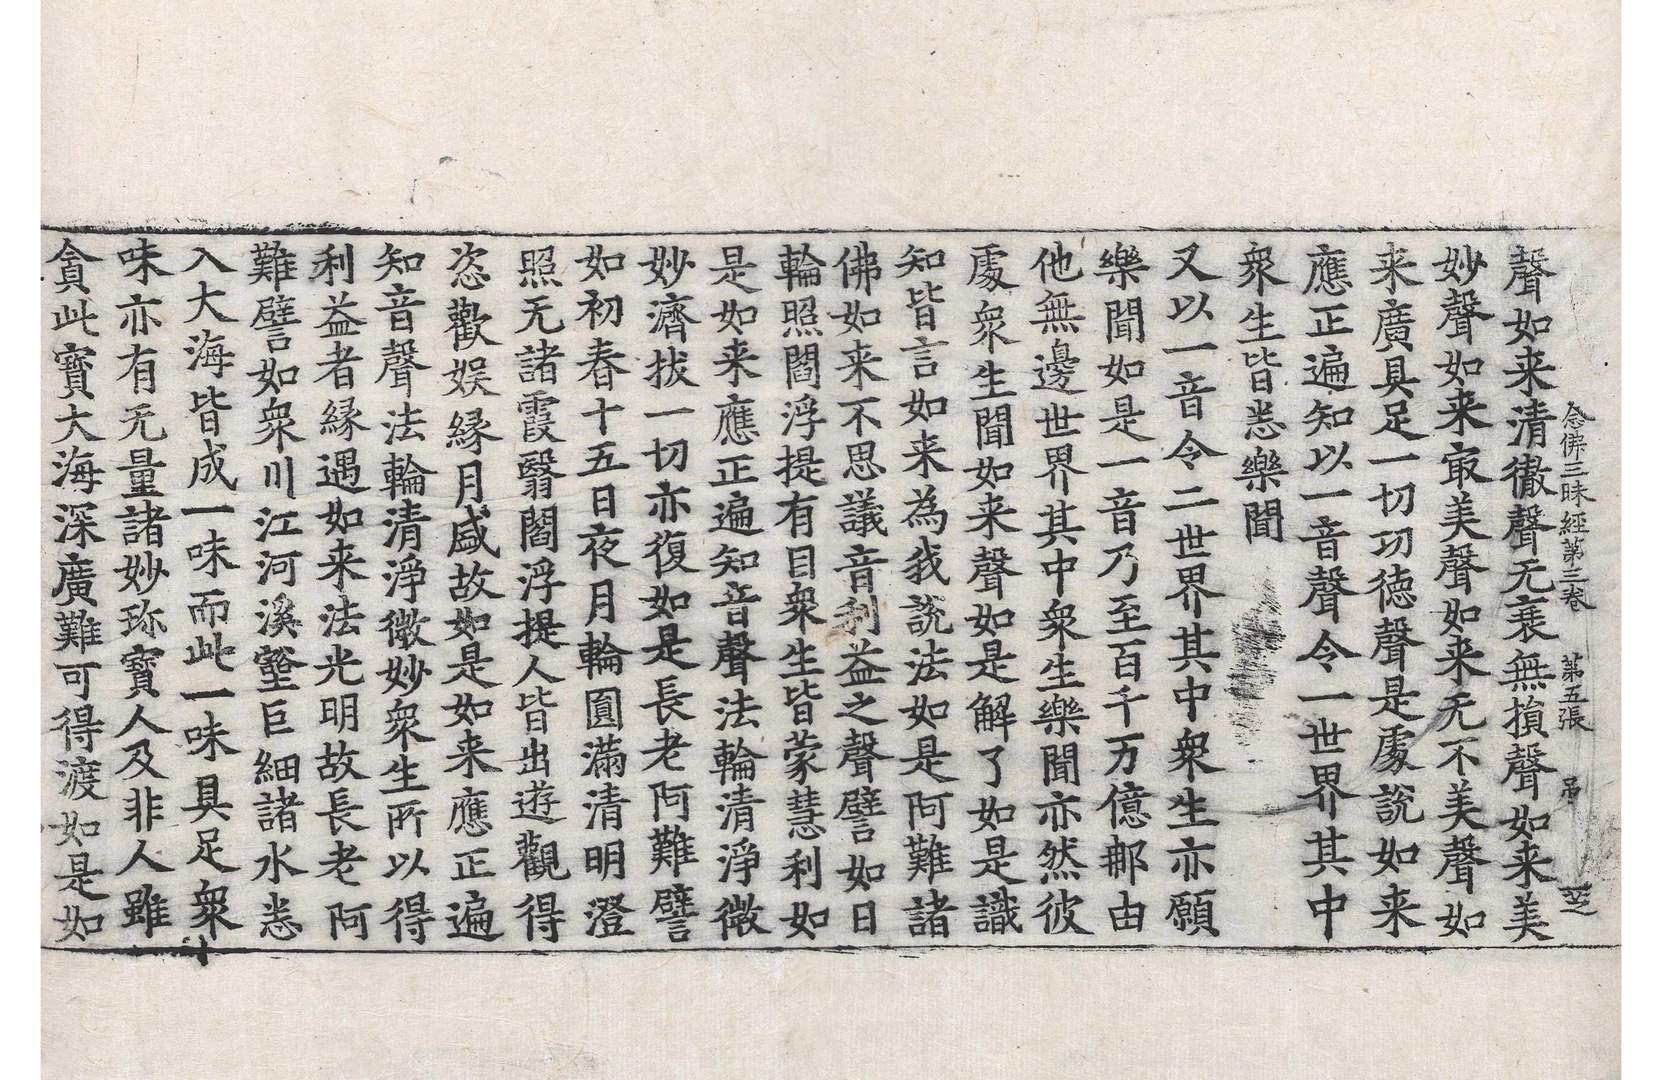 念佛三昧經第三卷 第五張 吊
聲如来清徹聲无衰無損聲如来美
妙聲如来㝡美聲如来无不美聲如
来廣具足一切功德聲是處說如来
應正遍知以一音聲令一世界其中
衆生皆悉樂聞
又以一音令二世界其中衆生亦願
樂聞如是一音乃至百千万億那由
他無邊世界其中衆生樂聞亦然彼
處衆生聞如来聲如是解了如是識
知皆言如来為我說法如是阿難諸
佛如来不思議音利益之聲譬如日
輪照閻浮提有目衆生皆蒙慧利如
是如来應正遍知音聲法輪清淨微
妙濟拔一切亦復如是長老阿難譬
如初春十五日夜月輪圓滿清明澄
照无諸霞翳閻浮提人皆出遊觀得
恣歡娱縁月盛故如是如来應正遍
知音聲法輪清淨微妙衆生所以得
利益者縁遇如来法光明故長老阿
難譬如衆川江河溪壑巨細諸水悉
入大海皆成一味而此一味具足衆
味亦有无量諸妙珎寶人及非人雖
貪此寶大海深廣難可得渡如是如